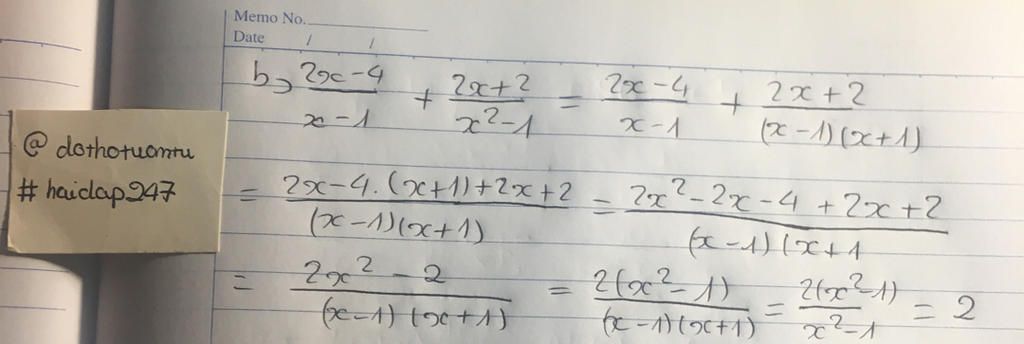 Memo No.
Date / /
b, \frac{2x-4}{x-1} + \frac{2x+2}{x^2-1} = \frac{2x-4}{x-1} + \frac{2x+2}{(x-1)(x+1)}
@ dothotuomtu
# haidap247
= \frac{2x-4.(x+1)+2x+2}{(x-1)(x+1)} = \frac{2x^2-2x-4+2x+2}{(x-1)(x+1}
= \frac{2x^2-2}{(x-1)(x+1)} = \frac{2(x^2-1)}{(x-1)(x+1)} = \frac{2(x^2-1)}{x^2-1} = 2